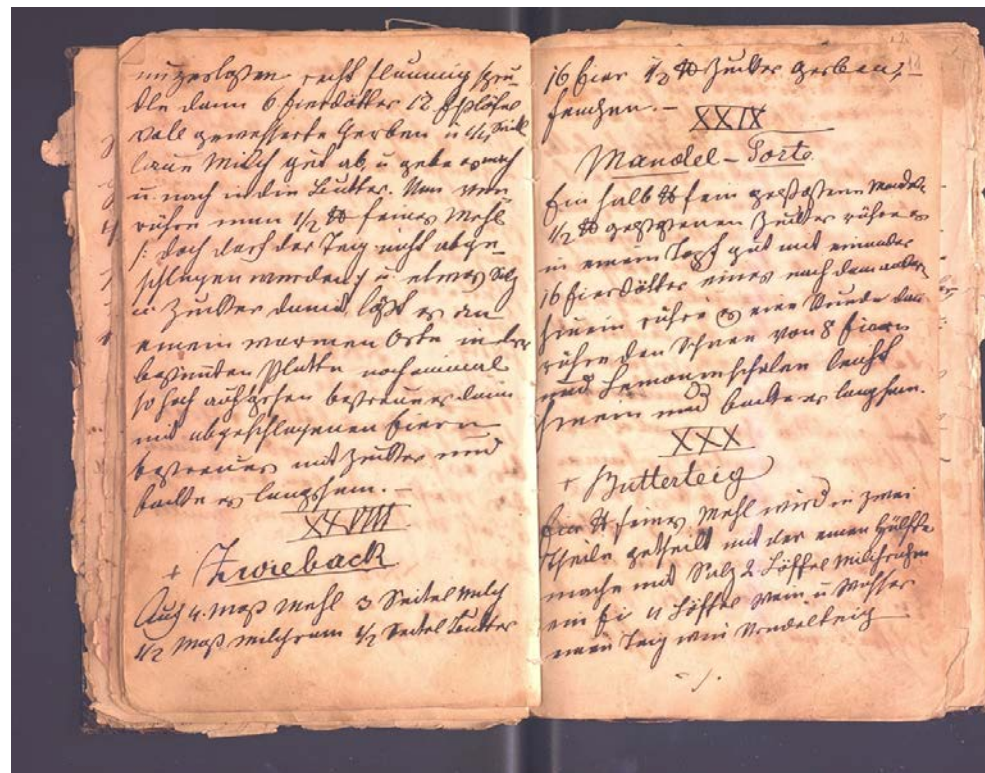 nuzerlassen recht flaumig spru-
dle dann 6 Eierdötter 12 Eßlöfel
voll gewesserte Gerben u ½ Seitl
laue Milch gut ab, u gebe es nach
u. nach in die Butter. Nun
rühre man 1/2 ℔ feines Mehl
/: doch darf der Teig nicht abge-
schlagen werden :/ u. etwas Salz
u: Zucker damit, laßt es an
einem warmen Orte in der
bestimten Platte noch einmal
so hoch aufgehen bestreue es dann
mit abgeschlagenen Eiern
bestreue es mit Zucker und
backe es langsam. –
XXVIII
+ Zwieback
Auf 4. Maß Mehl 3 Seitel Milch
1/2 Maß Milchram 1/2 Seitel Butter
16 Eier 1/2 ℔ Zucker Gerben,
Fenchen. –
XXIX
Mandel – Torte
Ein halb ℔ fein gestoßene Mandel
1/2 ℔ gestoßenen Zucker rühre es
in einem Topf gut mit einander
16 Eierdötter eines nach dem andern
hinein rühre es eine Stunde dan
rühre den Schnee von 8 Eiern
und Lemonieschalen leicht
hinein und backe es langsam.
XXX
+ Butterteig
Vier ℔ feines Mehl wird in zwei
Theile getheilt mit der einen Hälfte
mache mit Salz 2 Löffel Milchrahm
ein Ei 4 Löffel Wein u Wasser
einen Teig wie Nudelteig
./.